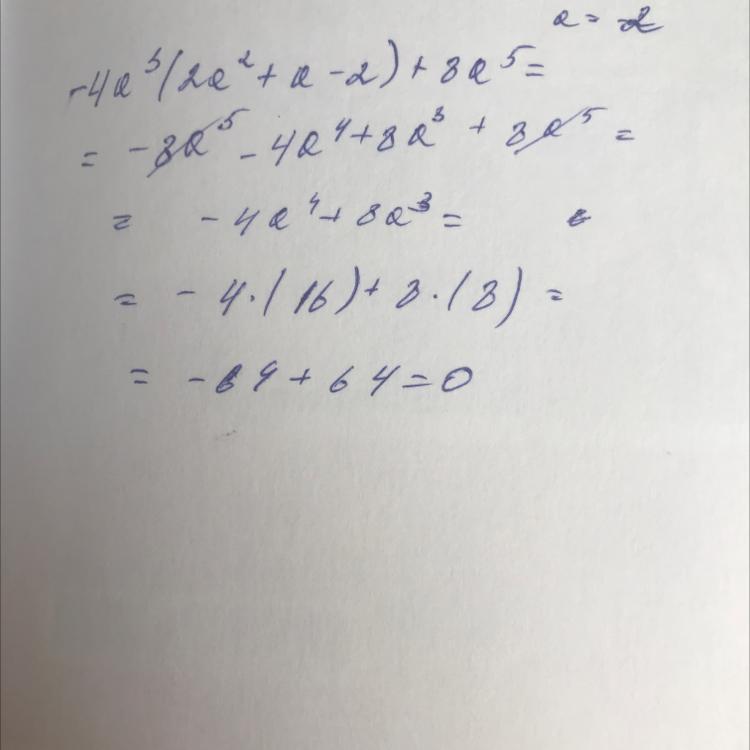 a = 2
-4a³(2a² + a - 2) + 8a⁵ =
= -8a⁵ - 4a⁴ + 8a³ + 8a⁵ =
= -4a⁴ + 8a³ =
= -4·(16) + 8·(8) =
= -64 + 64 = 0